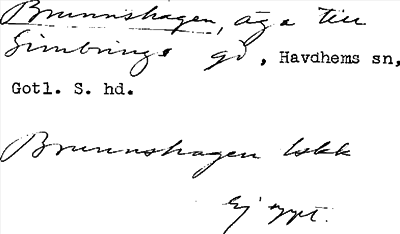 Brunnshagen, äga till
Simbrings gd, Havdhems sn,
Gotl. S. hd.
Brunnshagen lokk
Ej uppt.